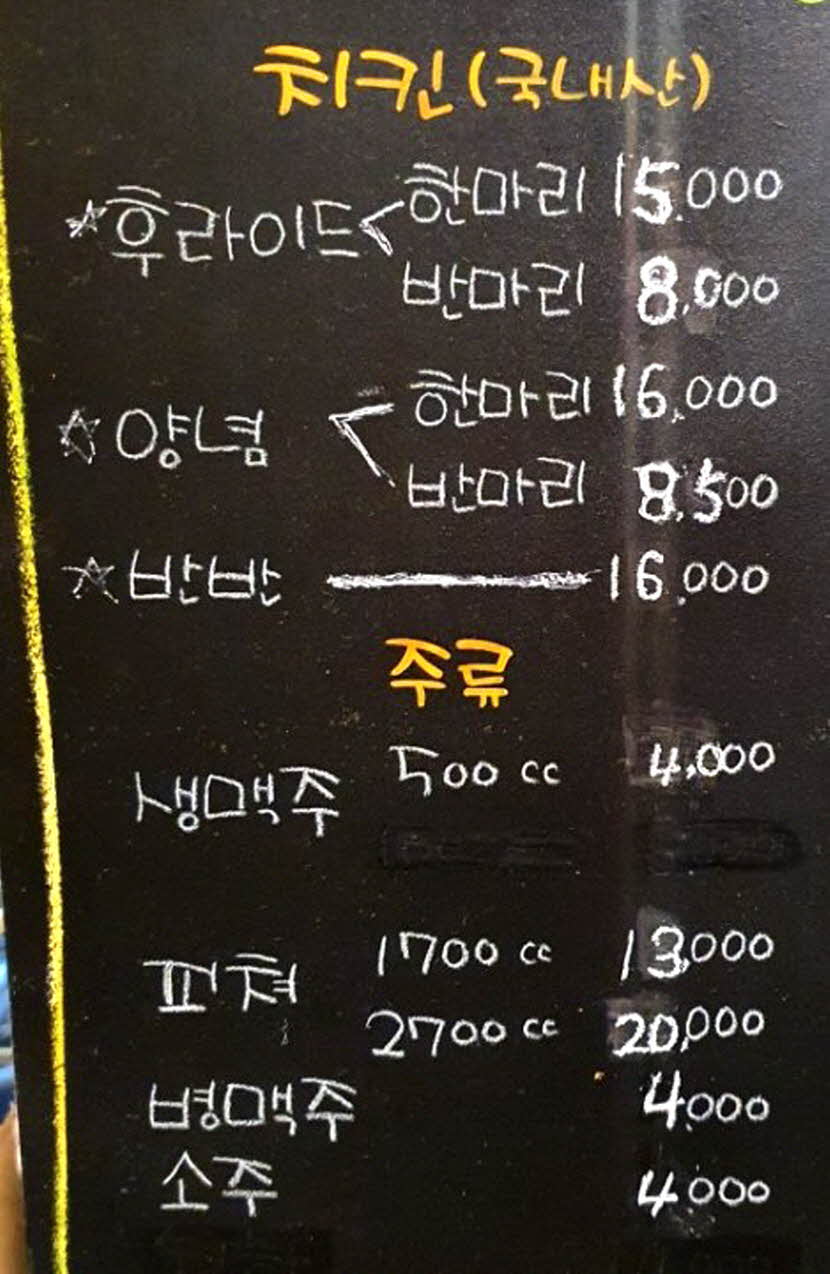 치킨(국내산)
☆후라이드 < 한마리 15,000
반마리 8,000
☆양념 < 한마리 16,000
반마리 8,500
☆반반 — 16,000
주류
생맥주 500 cc 4,000
피쳐 1700 cc 13,000
2700 cc 20,000
병맥주 4,000
소주 4,000